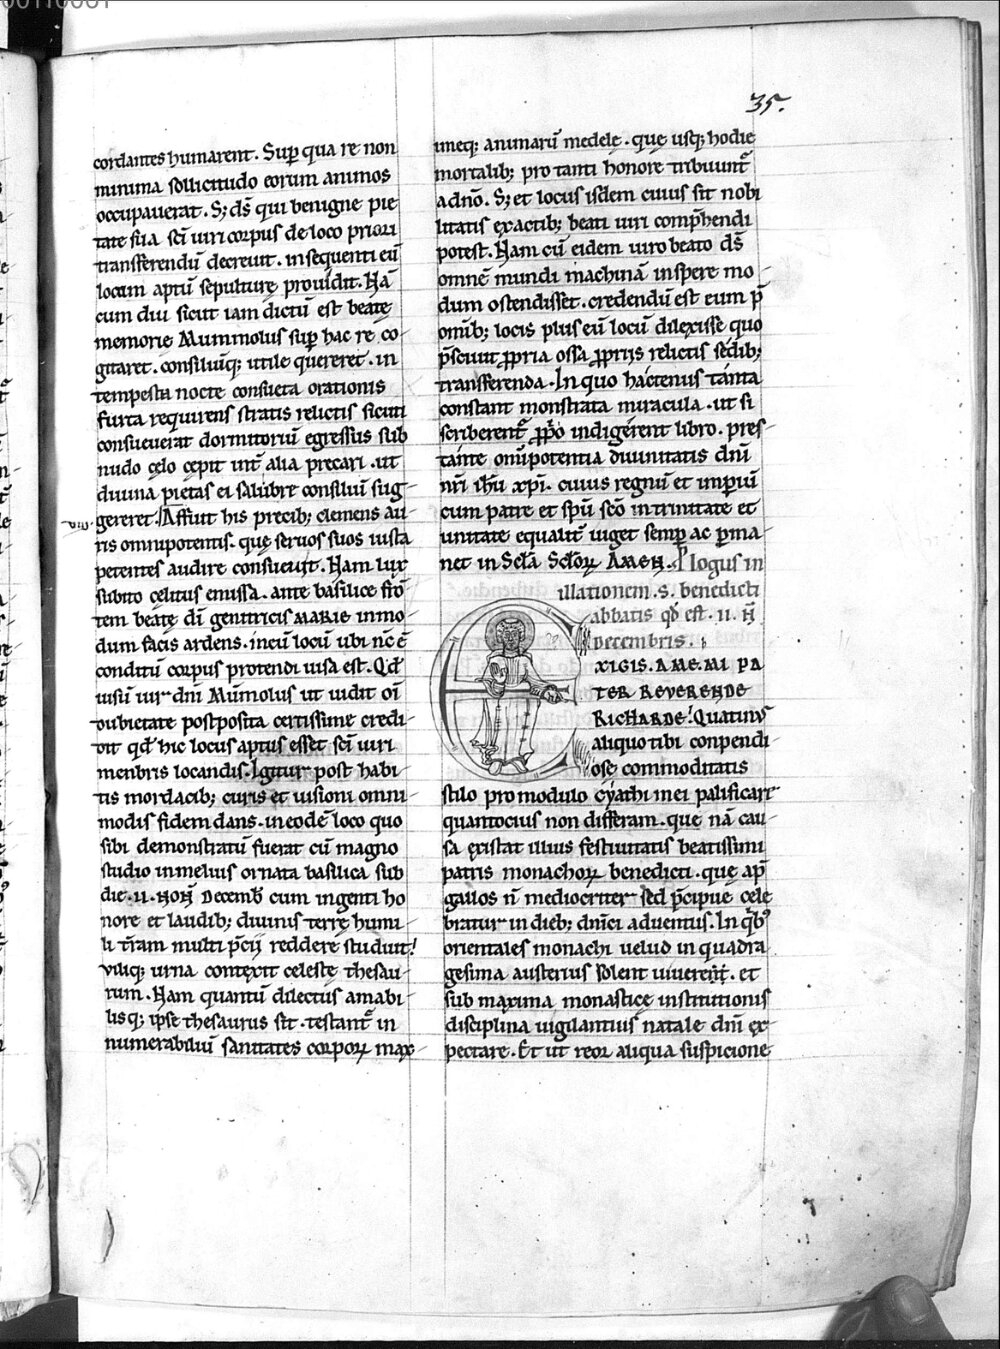 35.
cordantes humarent. Sup̄ qua re non
minima sollicitudo eorum animos
occupauerat. S; d̄s qui benigne pie
tate sua sc̄i uiri corpus de loco priori
transferendū decreuit. insequenti eū
locum aptū sepulturę prouidit. Nā
cum diu sicut iam dictū est beatę
memorię Mummolus sup̄ hac re co-
gitaret. consiliūq; utile quereret. in
tempesta nocte consueta orationis
furta requirens stratis relictis sicuti
consueuerat dormitoriū egressus sub
nudo cęlo cępit int̄ alia precari. ut
diuina pietas ei salubre consiliū sug-
gereret. Affuit his precib; clemens au-
ris omnipotentis. quę seruos suos iusta
petentes audire consueuit. Nam lux
subito cęlitus emissa. ante basilicę frō
tem beatę dī genitricis MARIĘ in mo-
dum facis ardens. in eū locū ubi nc̄ ē
conditū corpus protendi uisa est. Qd̄
uisū uir dn̄i Mūmolus ut uidit oī
dubietate postposita certissime credi-
dit qd̄ hic locus aptus esset sc̄i uiri
menbris locandis. Igitur post habi-
tis mordacib; curis et uisioni omni-
modis fidem dans. in eodē loco quo
sibi demonstratū fuerat cū magno
studio in melius ornata basilica sub
die. II. NON̄ DECEMB̄ cum ingenti ho
nore et laudib; diuinis terrę humi-
li tr̄am multi p̄cii reddere studuit!
Viliq; urna contexit celestę thesau-
rum. Nam quantū dilectus amabi-
lisq; ipse thesaurus sit. testant̄ in
numerabiliū sanitates corporꝝ max-
imeq; animarū medele. quę usq; hodie
mortalib; pro tanti honore tribuunt̄
a dn̄o. S; et locus isdem cuius sit nobi
litatis exactib; beati uiri comp̄hendi
potest. Nam cū eidem uiro beato d̄s
omnē mundi machinā in spere mo-
dum ostendisset. credendū est eum p̄
omīb; locis plus eū locū dilexisse quo
p̄sciuit ꝓpria ossa ꝓpriis relictis sedib;
transferenda. In quo hactenus tanta
constant monstrata miracula. ut si
scriberent̄ ꝓp̄o indigerent libro. pres-
tante om̄ipotentia diuinitatis dn̄i
nr̄i ih̄u xp̄i. cuius regnū et imp̄iū
cum patre et sp̄u sc̄o in trinitate et
unitate equalit̄ uiget semp̄ ac p̄ma
net in Scl̄a Scl̄oꝝ AMEN. P̄logus in
illationem .s. benedicti
abbatis qd̄ est. II. N̄
Decembris.
EXIGIS. A ME. MI PA
TER REVERENDE
RICHARDE! Quatinus
aliquo tibi conpendi-
ose commoditatis
stilo pro modulo cyathi mei palificare
quantocius non differam. que nā cau-
sa existat illius festiuitatis beatissimi
patris monachoꝝ benedicti. que ap̄
gallos n̄ mediocriter sed p̄cipue cele
bratur in dieb; dn̄ici aduentus. In q̄b;
orientales monachi uelud in quadra-
gesima austerius solent uiuere. et
sub maxima monasticę institutionis
disciplina uigilantius natale dn̄i ex-
pectare. Et ut reor aliqua suspicione